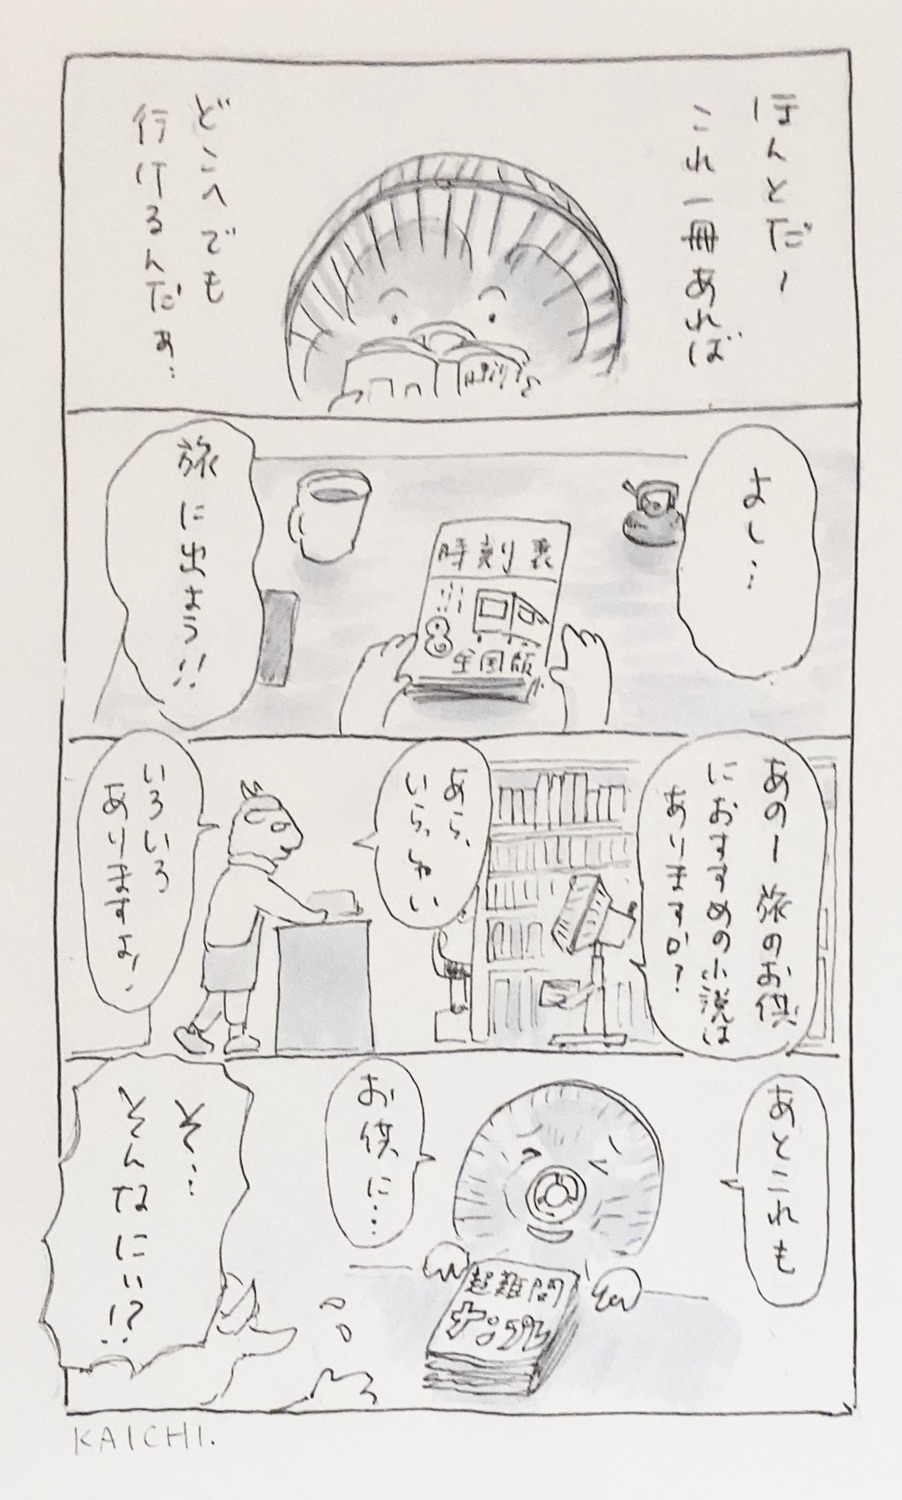 ほんとだ~
これ一冊あれば
どこへでも
行けるんだぁ…
よし…
時刻表
全国版
旅に出よう!!
あのー旅のお供
におすすめの小説は
ありますか?
あら、
いらっしゃい
いろいろ
ありますよ!
あとこれも
お供に…
超難問
ナンプレ
そ…
そんなにぃ!?
KAICHI.